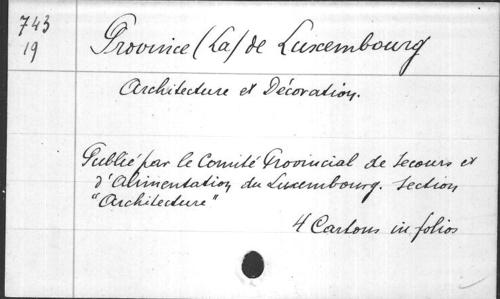 743
19
Province (La) de Luxembourg
Architecture et Décoration.
Publié par le Comité Provincial de Secours et
d'Alimentation du Luxembourg. Section
"Architecture"
4 Cartons in folios